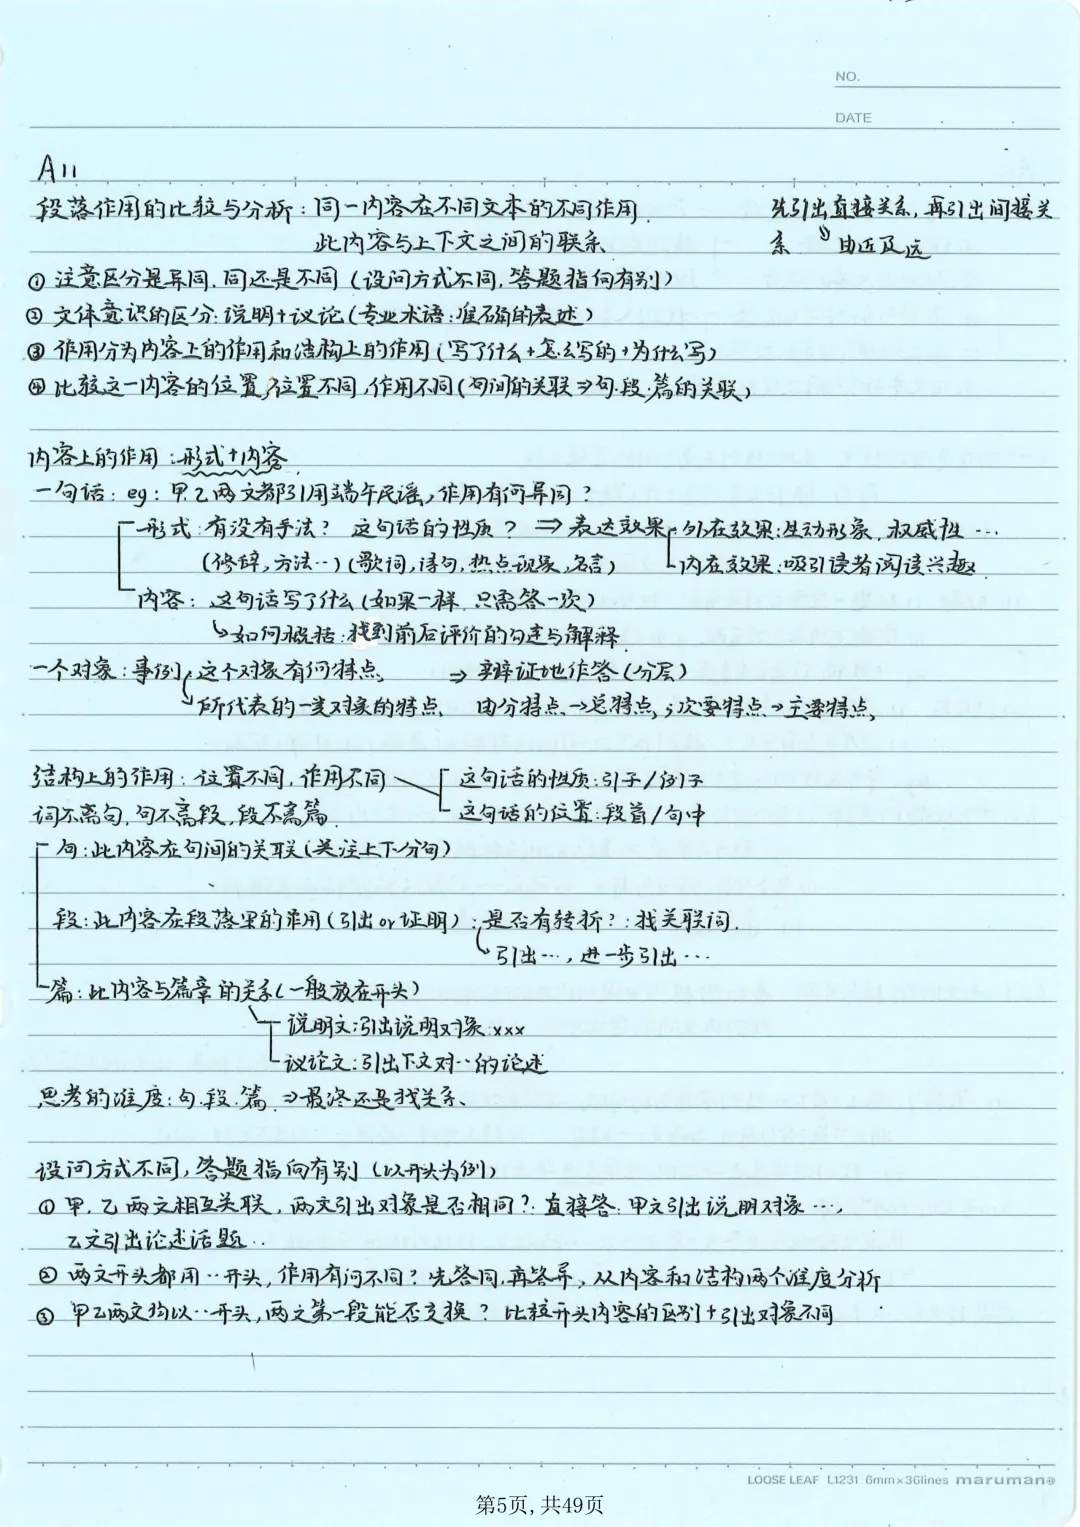 NO.
DATE
A11
段落作用的比较与分析：同一内容在不同文本的不同作用. 先引出直接关系,再引出间接关
此内容与上下文之间的联系 系 由近及远
① 注意区分是异同.同还是不同（设问方式不同,答题指向有别）
② 文体意识的区分:说明+议论(专业术语:准确的表述)
③ 作用分为内容上的作用和结构上的作用(写了什么+怎么写的+为什么写)
④ 比较这一内容的位置,位置不同,作用不同(句间的关联⇒句.段.篇的关联)
内容上的作用：形式+内容
一句话：eg：甲乙两文都引用端午民谣,作用有何异同？
形式：有没有手法？ 这句话的性质？ ⇒ 表达效果 外在效果:生动形象,权威性 …
(修辞,方法…) (歌词,诗句,热点现象,名言) 内在效果:吸引读者阅读兴趣
内容：这句话写了什么(如果一样,只需答一次)
↳如何概括:找到前后评价的句选与解释
一个对象：事例,这个对象有何特点, ⇒ 辩证地作答(分层)
所代表的一类对象的特点, 由分特点→总特点,;次要特点→主要特点,
结构上的作用：位置不同,作用不同 这句话的性质:引子/例子
词不离句,句不离段,段不离篇. 这句话的位置:段首/句中
句:此内容在句间的关联(关注上下分句)
段:此内容在段落里的作用(引出or证明):是否有转折?:找关联词.
引出…,进一步引出…
篇:此内容与篇章的关系(一般放在开头)
说明文:引出说明对象xxx
议论文:引出下文对…的论述
思考的准度:句.段.篇.⇒最终还是找关系、
设问方式不同,答题指向有别(以开头为例)
① 甲.乙两文相互关联,两文引出对象是否相同?:直接答:甲文引出说明对象…,
乙文引出论述话题…
② 两文开头都用…开头,作用有何不同？先答同,再答异,从内容和结构两个准度分析
③ 甲乙两文均以…开头,两文第一段能否交换？比较开头内容的区别+引出对象不同
LOOSE LEAF L1231 6mm×36lines maruman®
第5页,共49页